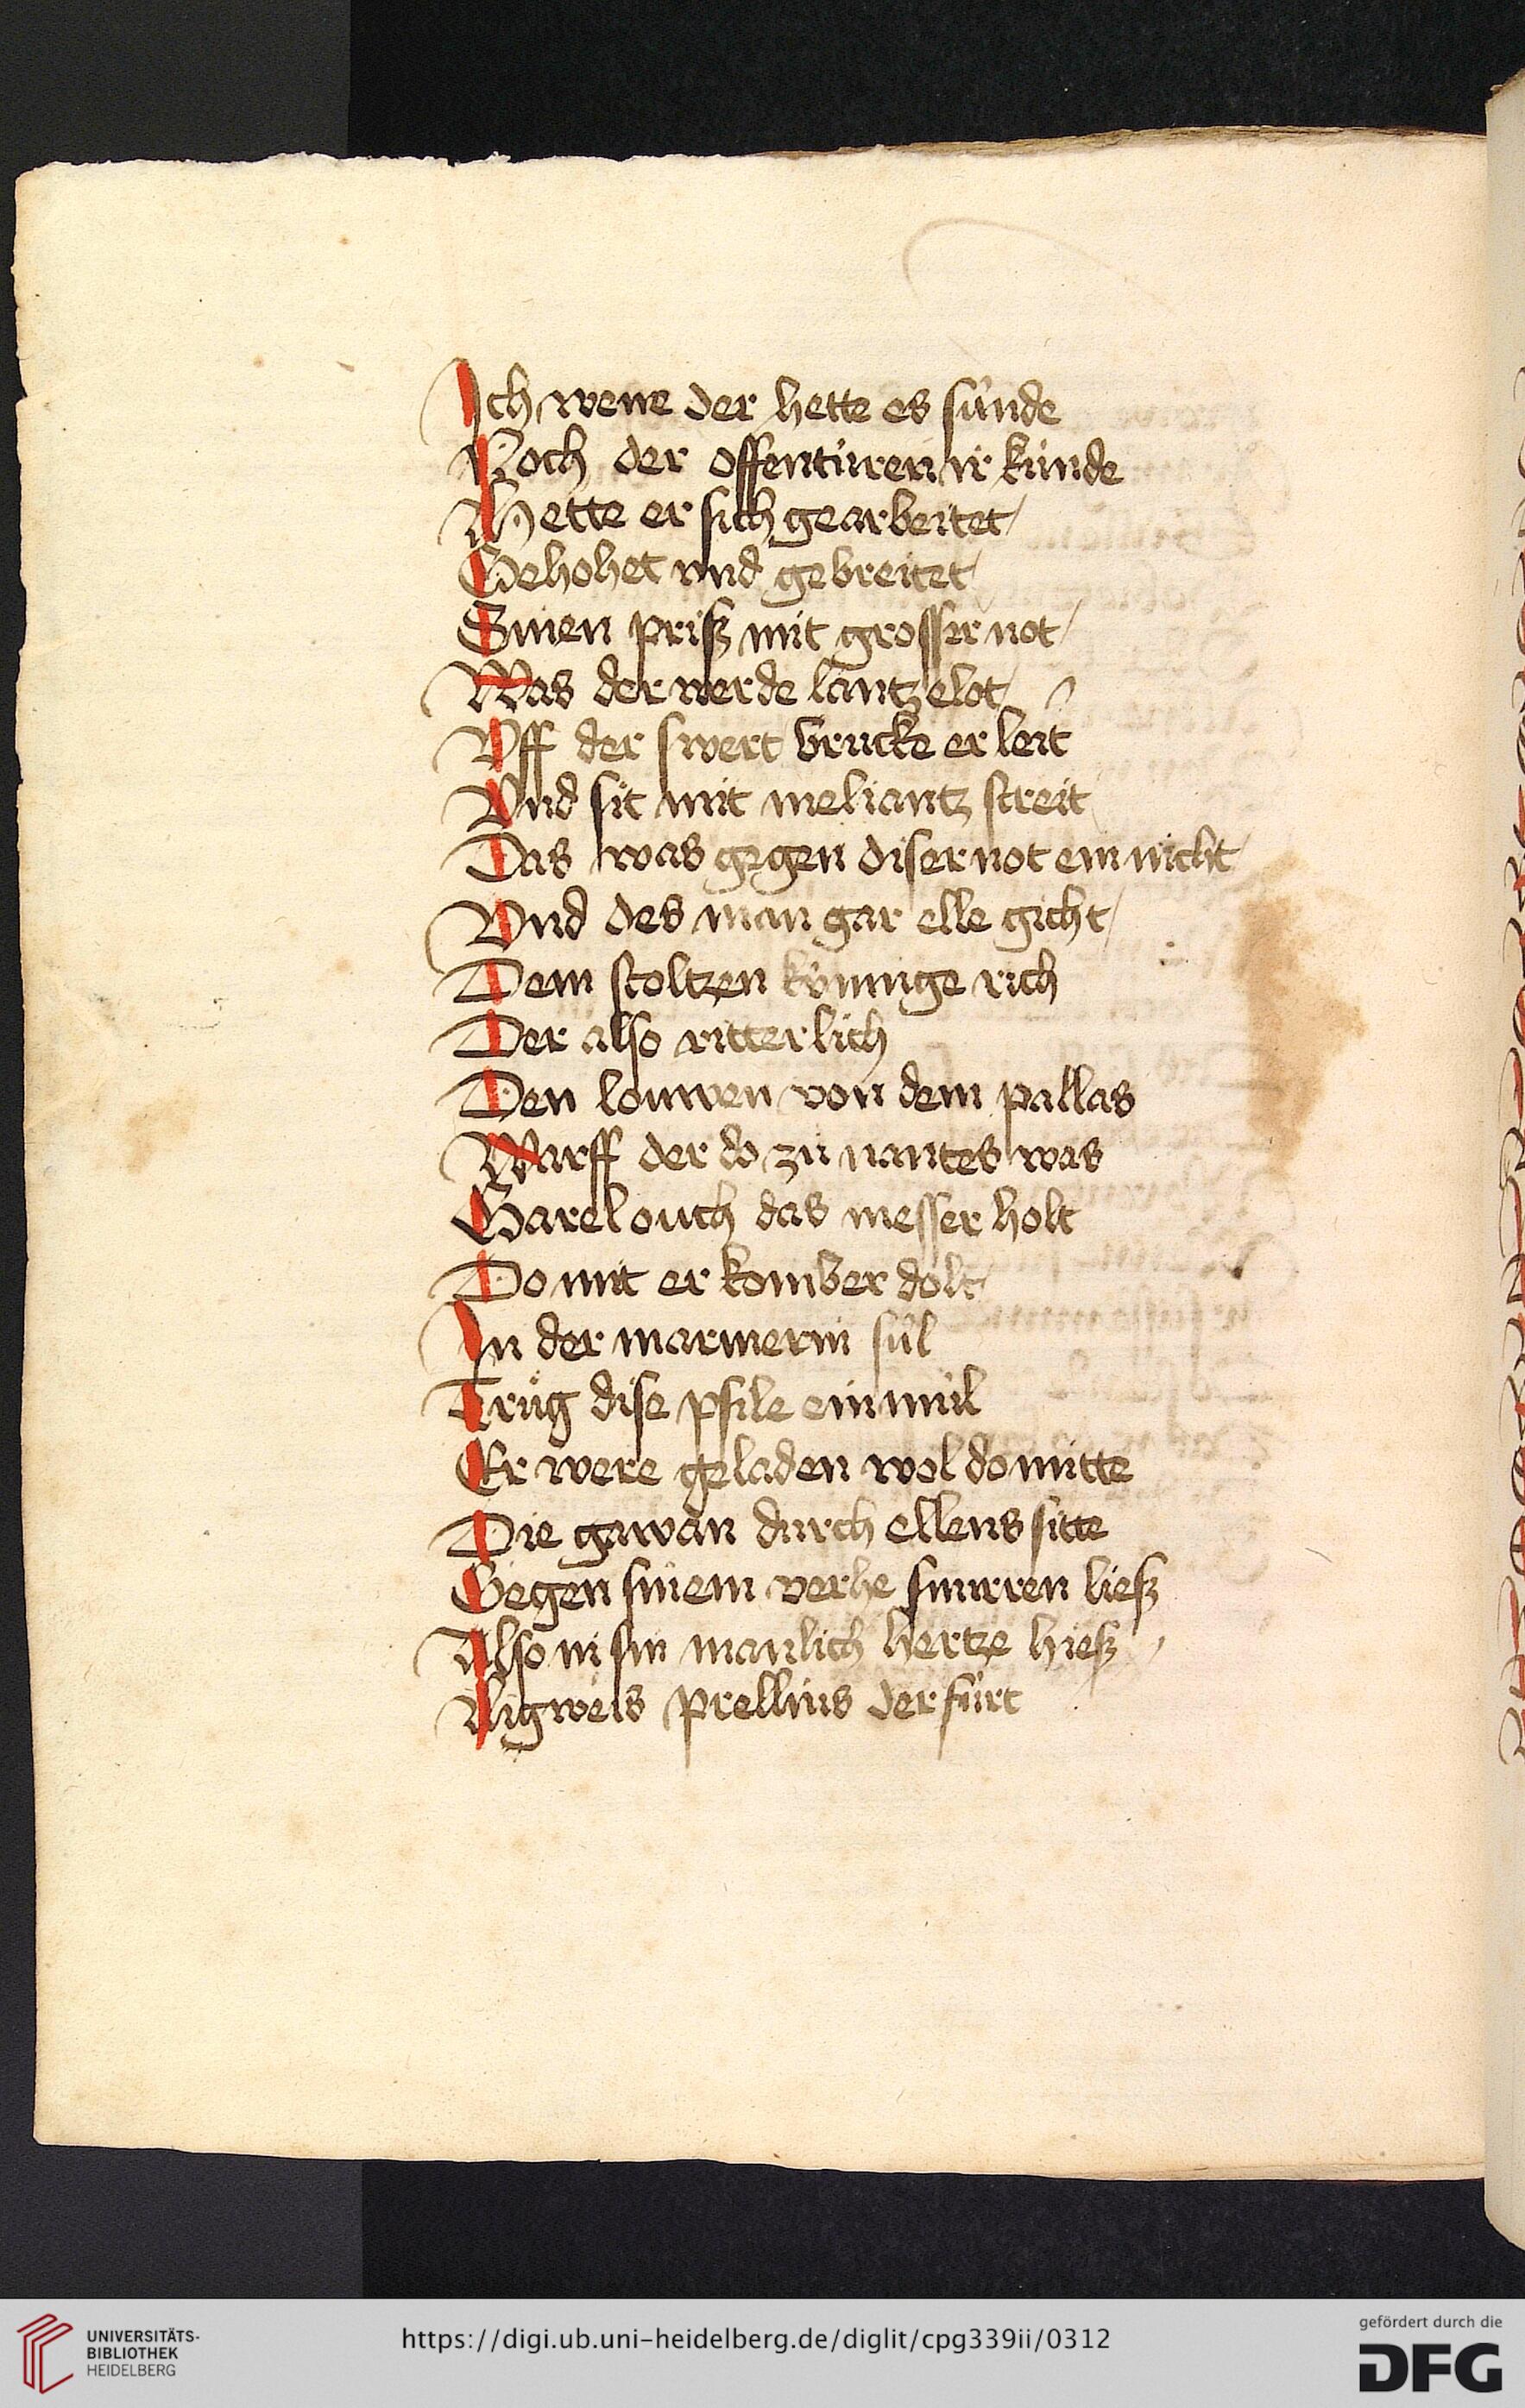 Ich wene der hette es sunde
Noch der offenturen ir kunde
Hette er sich gearbeitet
Gehohet vnd gebreitet
Sinen prisz mit grosser not
Was der werde lantzelot
Vff der swert brucke erleit
Vnd sit mit meliantz streit
Das was gegen diser not ein nicht
Vnd des man gar elle gicht
Dem stoltzen kúnige rich
Der also ritterlich
Den louwen von dem pallas
Warff der do zu nantes was
Garel ouch das messer holt
Do mit er komber dolt
In der marmerin sul
Trug dise pfile ein mul
Er were geladen wol do mitte
Die gawan durch ellens sitte
Gegen sinem verhe snurren liesz
Also in sin manlich hertze hiesz
Ligweis prellius der furt
UNIVERSITÄTS-
BIBLIOTHEK
HEIDELBERG
https://digi.ub.uni-heidelberg.de/diglit/cpg339ii/0312
gefördert durch die
DFG